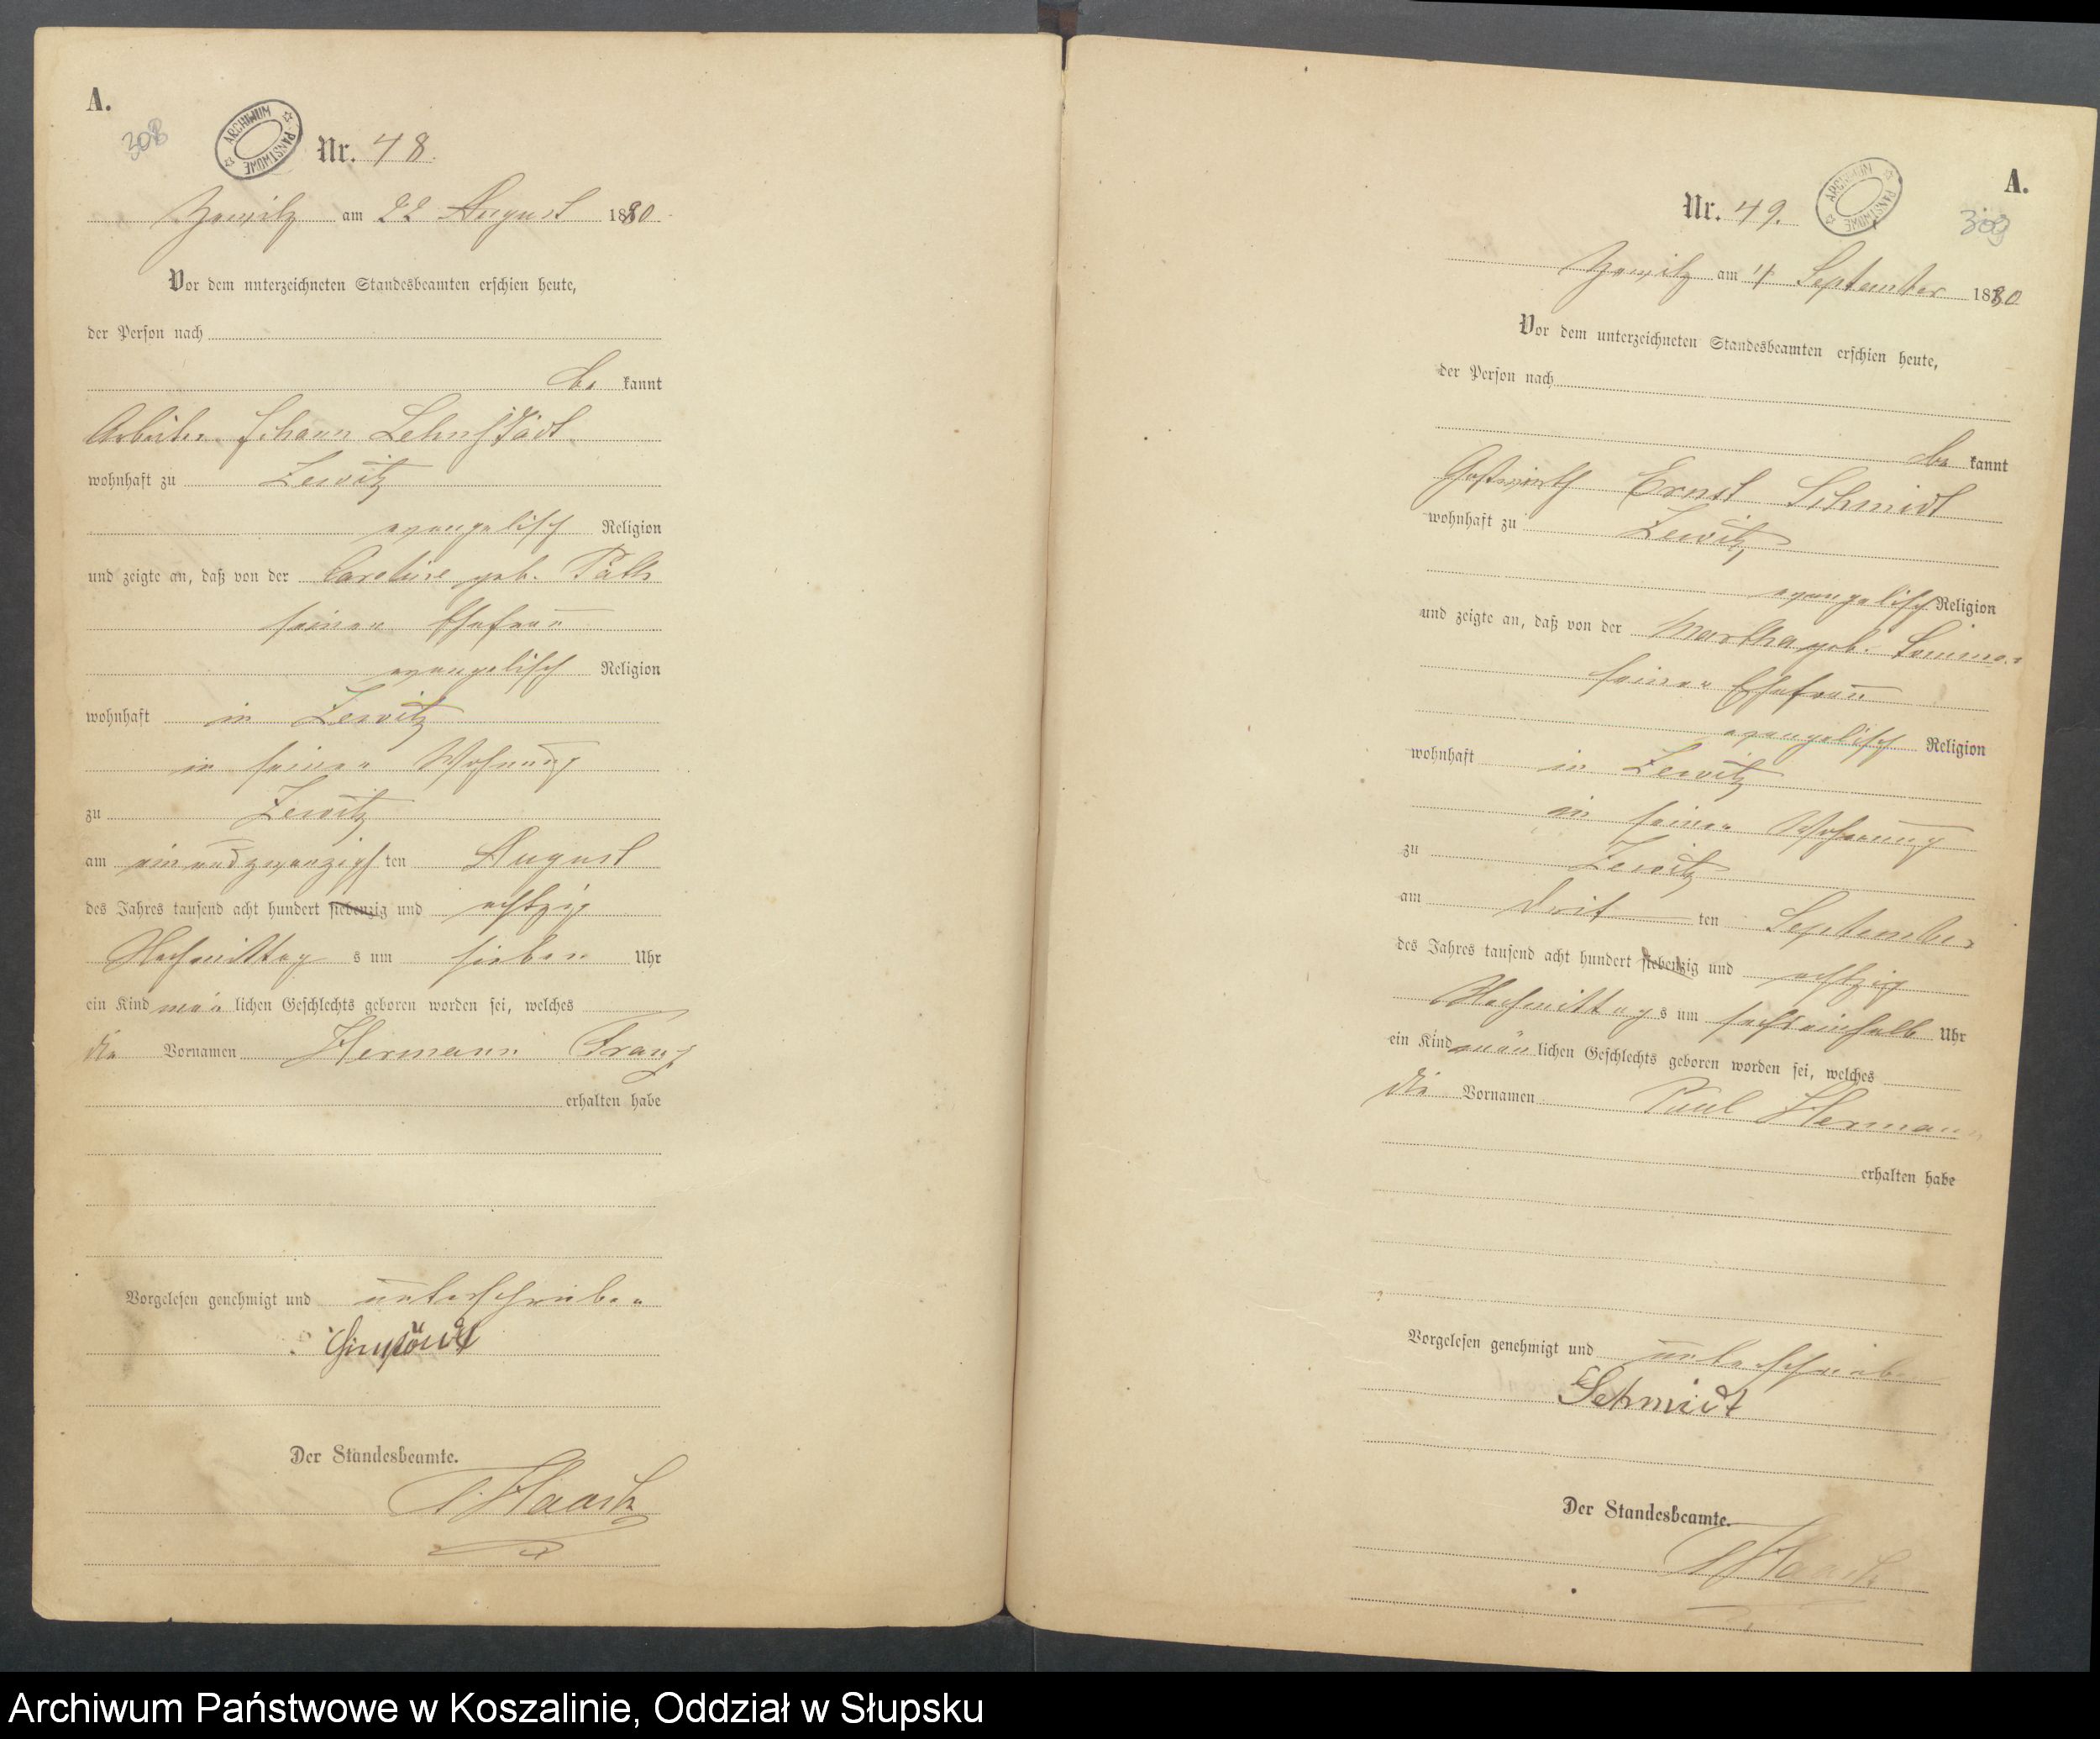 A.
308
ARCHIWUM PAŃSTWOWE
Nr. 48.
am 22 August 1880
Vor dem unterzeichneten Standesbeamten erschien heute,
der Person nach
be kannt
Arbeiter Johann Lehnstädt
wohnhaft zu Zewitz
evangelisch Religion
und zeigte an, daß von der Caroline geb.
seiner Ehefrau
evangelisch Religion
wohnhaft in Zewitz
in seiner Wohnung
zu Zewitz
am einundzwanzigsten August
des Jahres tausend acht hundert siebenzig und achtzig
Nachmittags um sieben Uhr
ein Kind män lichen Geschlechts geboren worden sei, welches
die Vornamen Hermann Franz
erhalten habe
Vorgelesen genehmigt und unterschrieben
Der Standesbeamte.
Haack
A.
309
ARCHIWUM PAŃSTWOWE
Nr. 49.
am 4 September 1880
Vor dem unterzeichneten Standesbeamten erschien heute,
der Person nach
be kannt
Gastwirth Ernst Schmidt
wohnhaft zu Zewitz
evangelisch Religion
und zeigte an, daß von der Martha geb.
seiner Ehefrau
evangelisch Religion
wohnhaft in Zewitz
in seiner Wohnung
zu Zewitz
am drit ten September
des Jahres tausend acht hundert siebenzig und achtzig
Nachmittags um sechseinhalb Uhr
ein Kind män lichen Geschlechts geboren worden sei, welches
die Vornamen Paul Hermann
erhalten habe
Vorgelesen genehmigt und unterschrieben
Schmidt
Der Standesbeamte.
Haack
Archiwum Państwowe w Koszalinie, Oddział w Słupsku